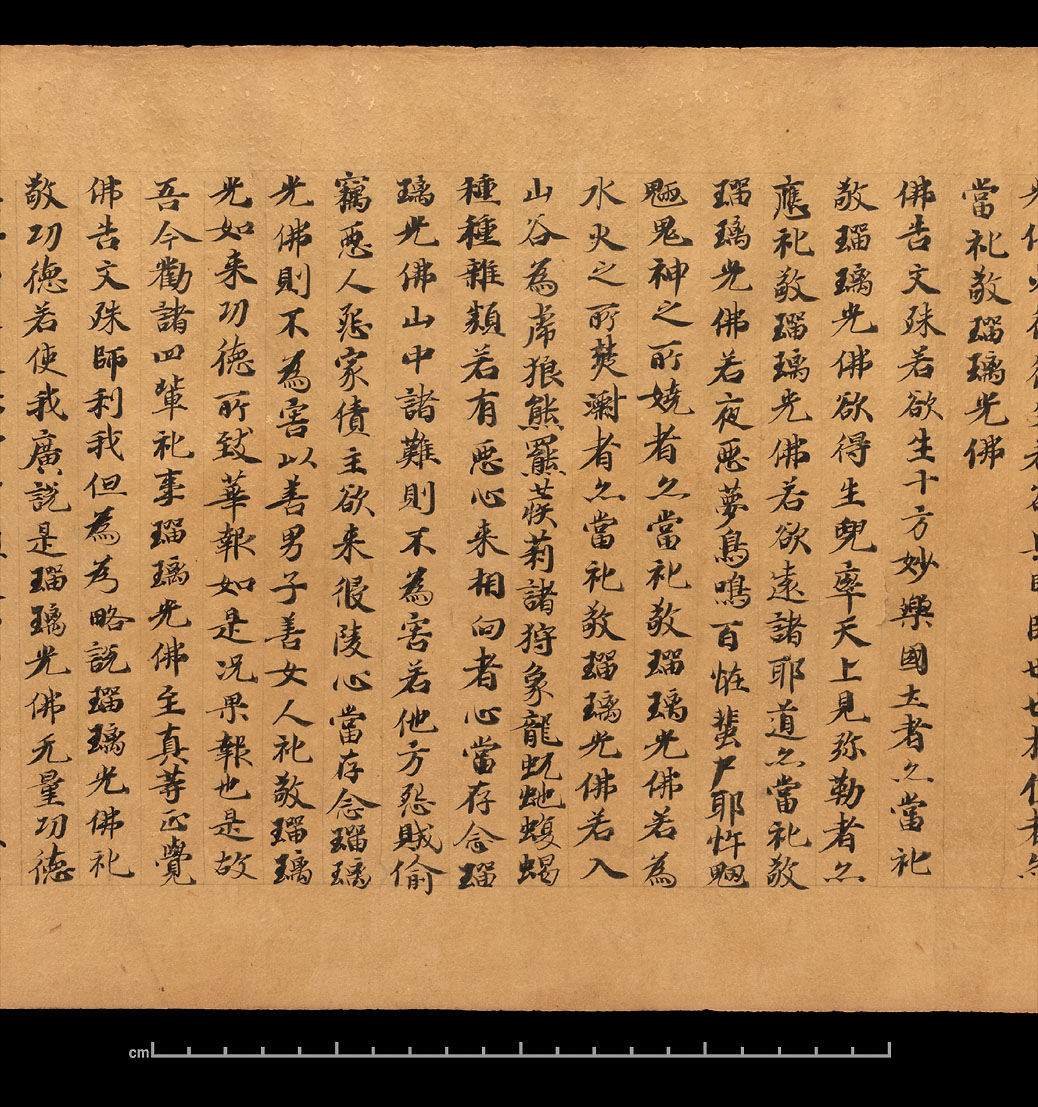 當礼敬瑠璃光佛
佛告文殊若欲生十方妙樂國土者亦當礼
敬瑠璃光佛欲得生兜率天上見弥勒者亦
應礼敬瑠璃光佛若欲遠諸耶道亦當礼敬
瑠璃光佛若夜惡夢鳥鳴百恠蜚尸耶忤魍
魎鬼神之所嬈者亦當礼敬瑠璃光佛若為
水火之所焚漂者亦當礼敬瑠璃光佛若入
山谷為虎狼熊羆蒺莉諸狩象龍蚖虵蝮蝎
種種雜類若有惡心来相向者心當存念瑠
璃光佛山中諸難則不為害若他方怨賊偷
竊惡人怨家債主欲来侵陵心當存念瑠璃
光佛則不為害以善男子善女人礼敬瑠璃
光如来功德所致華報如是况果報也是故
吾今勸諸四軰礼事瑠璃光佛至真等正覺
佛告文殊師利我但為為略說瑠璃光佛礼
敬功德若使我廣說是瑠璃光佛无量功德